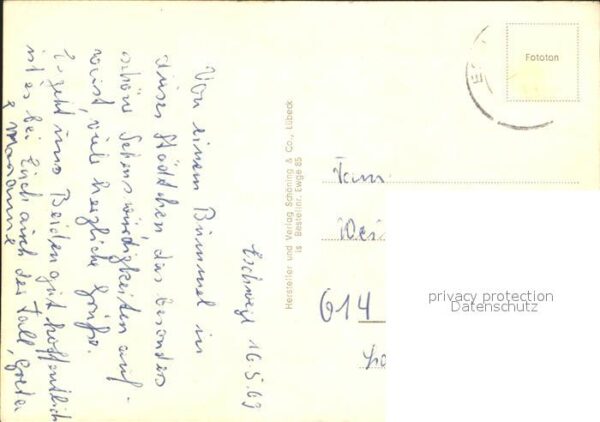 Eschwege 16.5.69
Von einem Bummel in
dieses Städtchen das besonders
schöne Sehenswürdigkeiten auf-
weist, viele herzliche Grüße.
Es geht uns Beiden gut hoffentlich
ist es bei Euch auch der Fall, Greta
& Marianne
Hersteller und Verlag Schöning & Co., Lübeck
Bestellnr. Ewge 85
Fototon
Fam.
614
privacy protection
Datenschutz